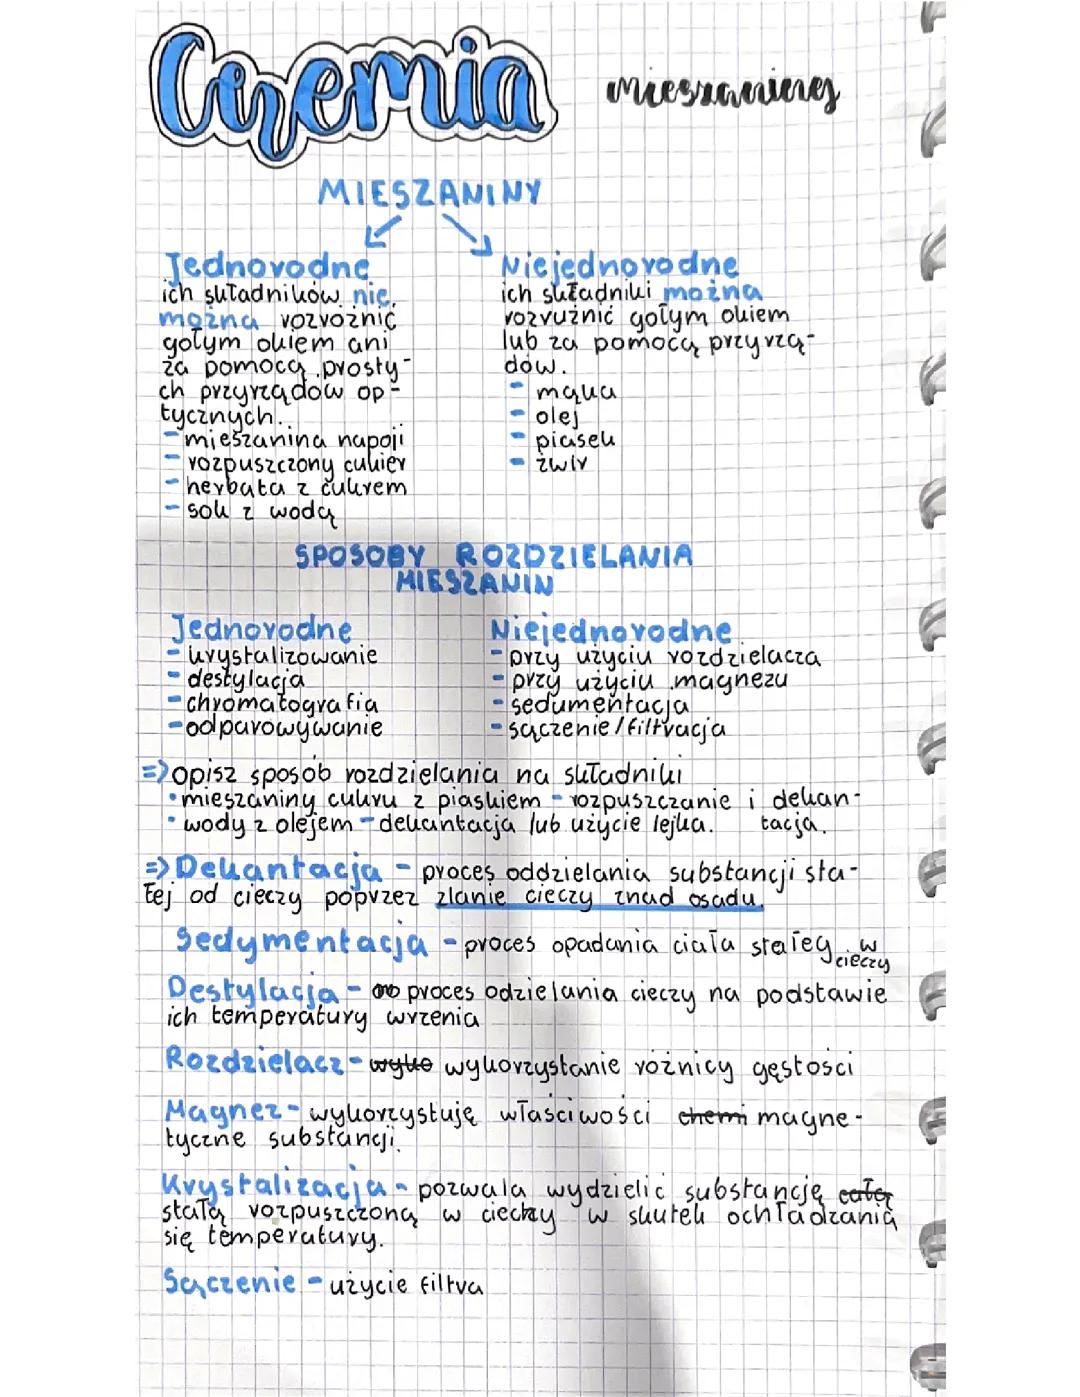 Chemia mieszaniny
MIESZANINY
Jednorodne
ich składników nie
można rozróżnić
gołym okiem ani
za pomocą prosty-
ch przyrządów op-
tycznych..
- mieszanina napoji
- rozpuszczony cukier
- herbata z cukrem
- sok z wodą
Niejednorodne
ich składniki można
rozrużnić gołym okiem
lub za pomocą przyrzą-
dów.
- mąka
- olej
- piasek
- żwir
SPOSOBY ROZDZIELANIA
MIESZANIN
Jednorodne
- krystalizowanie
- destylacja
- chromatografia
- odparowywanie
Niejednorodne
- przy użyciu rozdzielacza
- przy użyciu magnezu
- sedumentacja
- sączenie/filtracja
=> opisz sposób rozdzielania na składniki
• mieszaniny cukru z piaskiem - rozpuszczanie i dekan-
• wody z olejem - dekantacja lub użycie lejka. tacja.
=> Dekantacja - proces oddzielania substancji sta-
łej od cieczy poprzez zlanie cieczy znad osadu.
Sedymentacja - proces opadania ciała stałeg w
cieczy
Destylacja - proces odzielania cieczy na podstawie
ich temperatury wrzenia
Rozdzielacz - wyko wykorzystanie różnicy gęstości
Magnez - wykorzystuję właściwości chemi magne-
tyczne substancji
Krystalizacja - pozwala wydzielić substancję całą
stałą rozpuszczoną w cieczy w skutek ochładzania
się temperatury.
Sączenie - użycie filtra